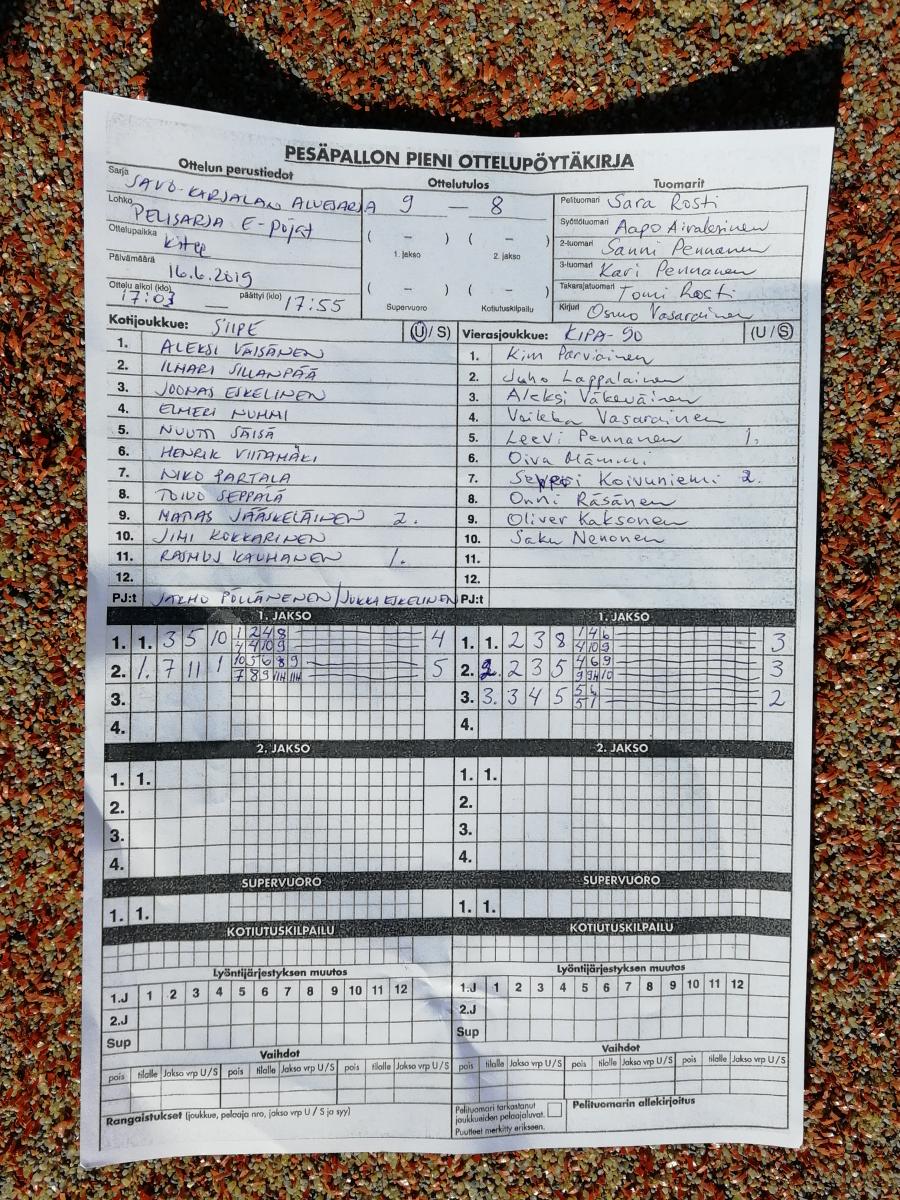 PESÄPALLON PIENI OTTELUPÖYTÄKIRJA
Ottelun perustiedot
Sarja SAVO-KARJALAN ALUESARJA
Lohko PELISARJA E-pojat
Ottelupaikka Kitee
Päivämäärä 16.6.2019
Ottelu alkoi (klo) 17:03 päättyi (klo) 17:55
Ottelutulos
9 — 8
( – ) ( – )
1. jakso 2. jakso
( – ) ( – )
Supervuoro Kotiutuskilpailu
Tuomarit
Pelituomari Sara Rosti
Syöttötuomari Aapo
2-tuomari Sanni Pennanen
3-tuomari Kari Pennanen
Takarajatuomari Tomi Rosti
Kirjuri Osmo Vasarainen
Kotijoukkue: SIIPE (U / S)
1. ALEKSI VÄISÄNEN
2. ILMARI SILLANPÄÄ
3. JOONAS ESKELINEN
4. ELMERI NUMMI
5. NUUTTI SÄISÄ
6. HENRIK VIITAMÄKI
7. NIKO PARTALA
8. TOIVO SEPPÄLÄ
9. MATIAS JÄÄSKELÄINEN 2.
10. JIMI KOKKARINEN
11. RASMUS KAUHANEN 1.
12.
PJ:t JARMO PÖLLÄNENEN/JUKKA ESKELINEN
Vierasjoukkue: KIPA-90 (U / S)
1. Kim Parviainen
2. Juho Lappalainen
3. Aleksi Väkeväinen
4. Veikka Vasarainen
5. Leevi Pennanen 1.
6. Oiva
7. Koivuniemi 2.
8. Onni Räsänen
9. Oliver Kaksonen
10. Saku Nenonen
11.
12.
PJ:t
1. JAKSO
1. 1. 3 5 10 1 2 4 8 4
4 4 10 9
2. 1. 7 11 1 10 5 6 8 9 5
7 8 9
3.
4.
1. JAKSO
1. 1. 2 3 8 1 4 6 3
4 10 9
2. 2. 2 3 5 4 6 9 3
3. 3. 3 4 5 5 6 2
5 1
4.
2. JAKSO
1. 1.
2.
3.
4.
2. JAKSO
1. 1.
2.
3.
4.
SUPERVUORO
1. 1.
SUPERVUORO
1. 1.
KOTIUTUSKILPAILU
KOTIUTUSKILPAILU
Lyöntijärjestyksen muutos
1.J 1 2 3 4 5 6 7 8 9 10 11 12
2.J
Sup
Lyöntijärjestyksen muutos
1.J 1 2 3 4 5 6 7 8 9 10 11 12
2.J
Sup
Vaihdot
pois tilalle Jakso vrp U / S pois tilalle Jakso vrp U / S pois tilalle Jakso vrp U / S
Vaihdot
pois tilalle Jakso vrp U / S pois tilalle Jakso vrp U / S pois tilalle Jakso vrp U / S
Rangaistukset (joukkue, pelaaja nro, jakso vrp U / S ja syy)
Pelituomari tarkastanut
joukkueiden pelaajaluvat.
Puutteet merkitty erikseen.
Pelituomarin allekirjoitus